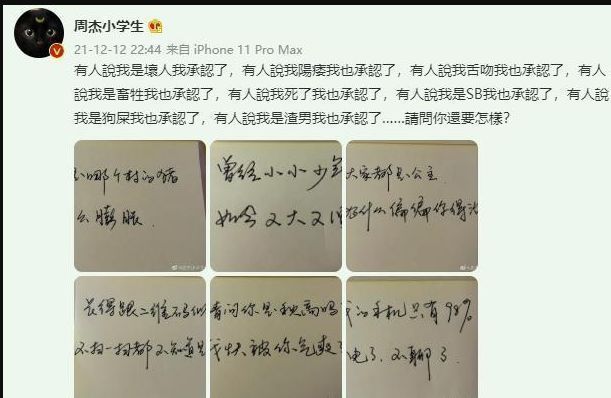 周杰小学生
21-12-12 22:44 来自 iPhone 11 Pro Max
有人說我是壞人我承認了，有人說我陽痿我也承認了，有人說我舌吻我也承認了，有人
說我是畜牲我也承認了，有人說我死了我也承認了，有人說我是SB我也承認了，有人說
我是狗屎我也承認了，有人說我是渣男我也承認了……請問你還要怎樣？
哪个村的猪
么膨胀
曾经小小少年
如今又大又
大家都是公主
为什么偏偏你得
长得跟二维码似
不扫一扫都不知道是
请问你是秋高吗
我快被你气爽了
我的手机只有98%
电了，不聊了